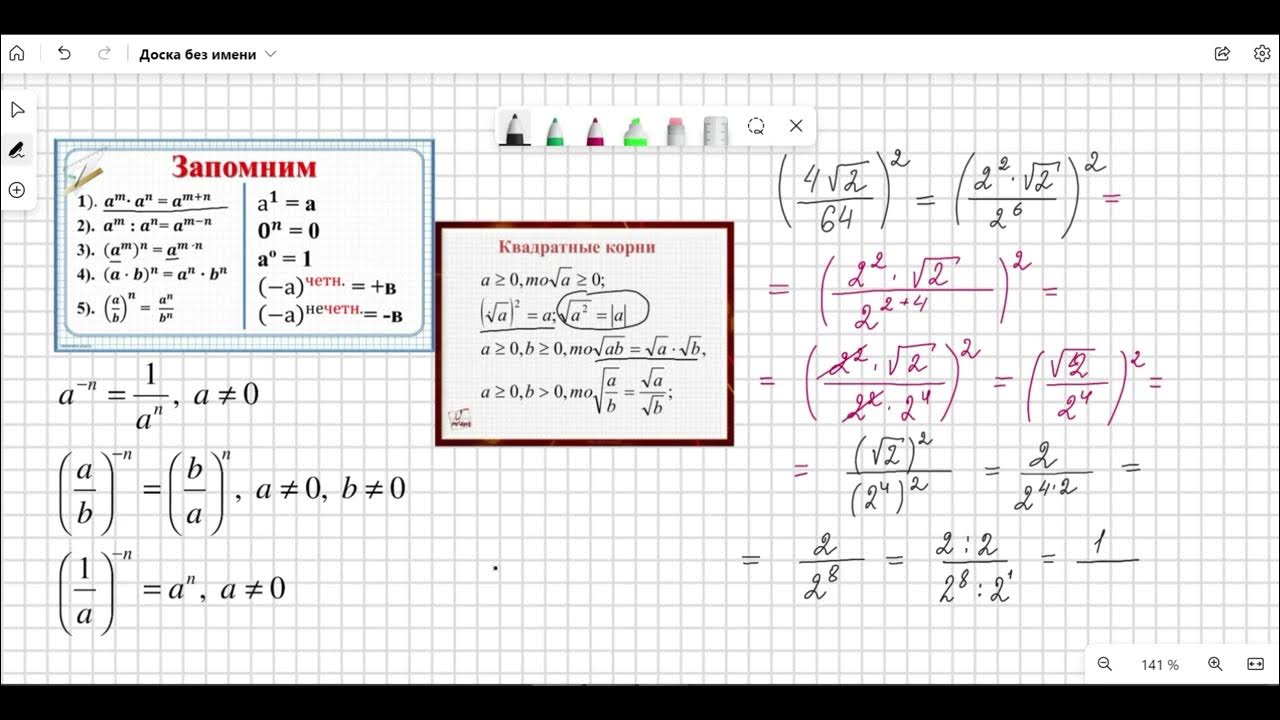 Доска без имени
Запомним
1). a^m · a^n = a^{m+n}
2). a^m : a^n = a^{m-n}
3). (a^m)^n = a^{m·n}
4). (a · b)^n = a^n · b^n
5). (a/b)^n = a^n/b^n
a^1 = a
0^n = 0
a^0 = 1
(−a)^{четн.} = +в
(−a)^{нечетн.} = -в
a^{-n} = 1/a^n, a ≠ 0
(a/b)^{-n} = (b/a)^n, a ≠ 0, b ≠ 0
(1/a)^{-n} = a^n, a ≠ 0
Квадратные корни
a ≥ 0, то √a ≥ 0;
(√a)^2 = a; √a^2 = |a|
a ≥ 0, b ≥ 0, то √ab = √a · √b,
a ≥ 0, b > 0, то √(a/b) = √a/√b;
(4√2/64)^2 = (2^2 · √2/2^6)^2 =
= (2^2 · √2/2^{2+4})^2 =
= (2^2 · √2/2^2 · 2^4)^2 = (√2/2^4)^2 =
= (√2)^2/(2^4)^2 = 2/2^{4·2} =
= 2/2^8 = 2:2/2^8:2^1 = 1/
141 %